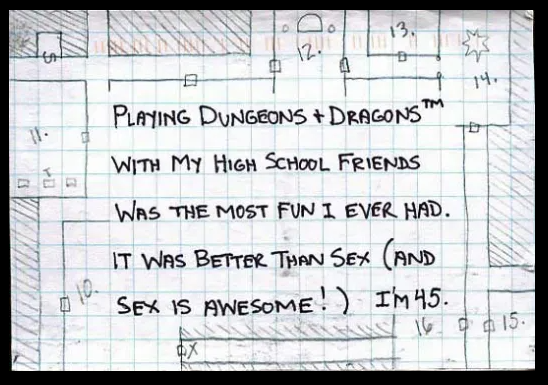 S
12.
13.
14.
11.
T
PLAYING DUNGEONS + DRAGONS™
WITH MY HIGH SCHOOL FRIENDS
WAS THE MOST FUN I EVER HAD.
IT WAS BETTER THAN SEX (AND
SEX IS AWESOME!) I'M 45.
10.
16
15.
X